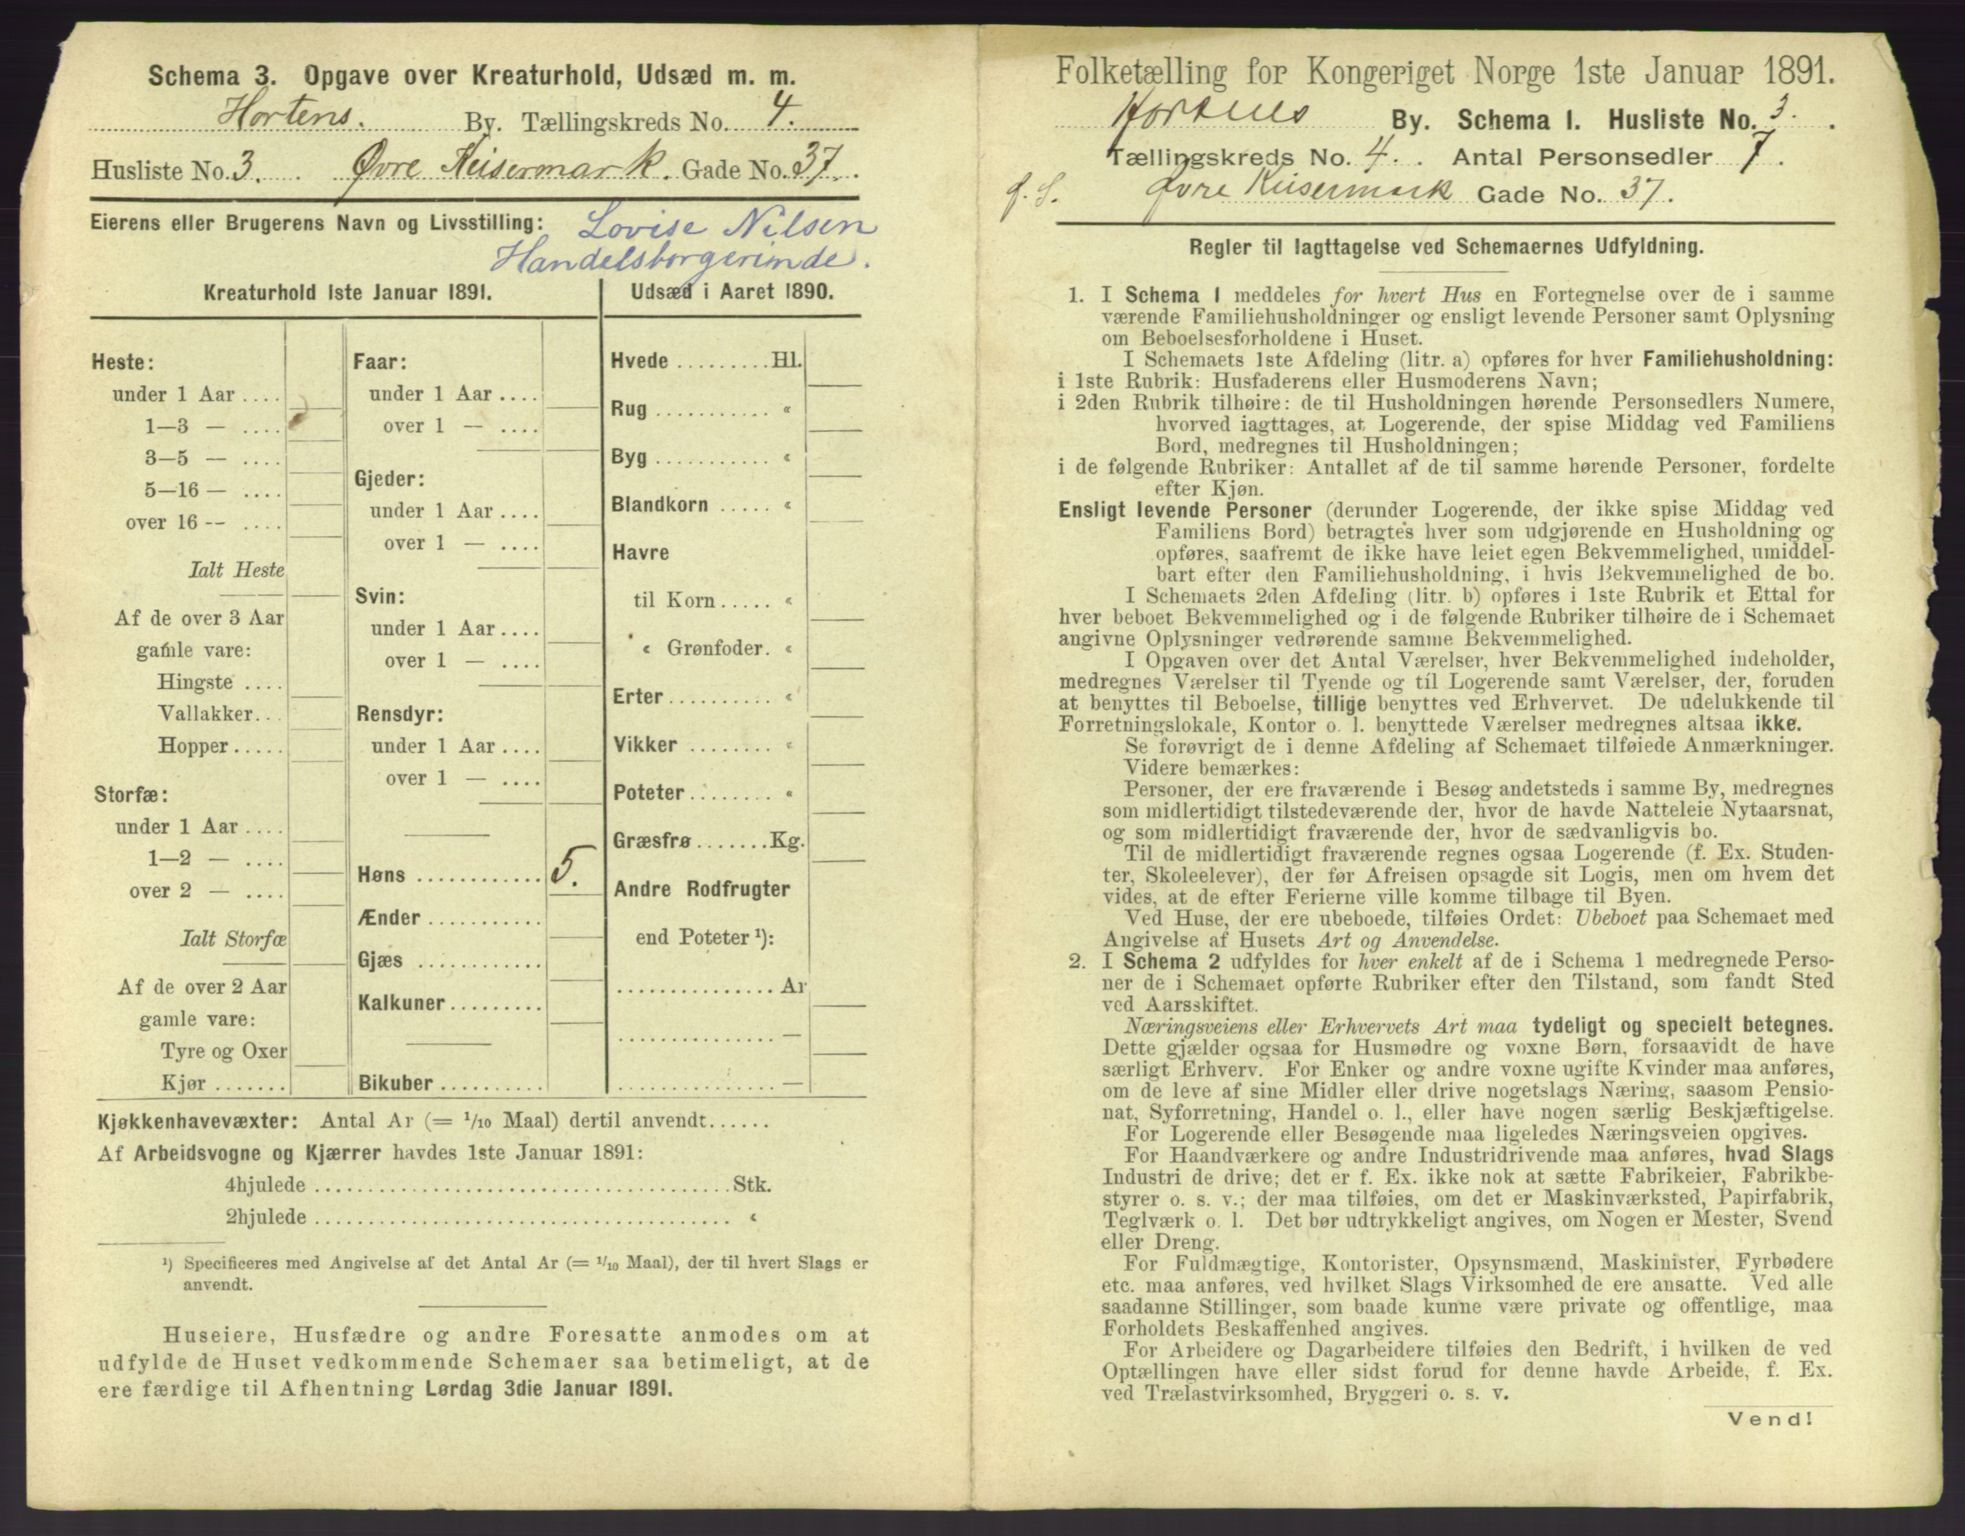 Schema 3. Opgave over Kreaturhold, Udsæd m. m.
Hortens. By. Tællingskreds No. 4.
Husliste No. 3. Øvre Keisermark. Gade No. 37.
Eierens eller Brugerens Navn og Livsstilling: Lovise Nilsen
Handelsborgerinde.
Kreaturhold 1ste Januar 1891.
Heste:
under 1 Aar ....
1—3 — ....
3—5 — ....
5—16 — ....
over 16 -- ....
Ialt Heste
Af de over 3 Aar
gamle vare:
Hingste ....
Vallakker...
Hopper.....
Storfæ:
under 1 Aar ....
1—2 — ....
over 2 — ....
Ialt Storfæ
Af de over 2 Aar
gamle vare:
Tyre og Oxer
Kjør.......
Faar:
under 1 Aar ....
over 1 — ....
Gjeder:
under 1 Aar ....
over 1 — ....
Svin:
under 1 Aar ....
over 1 — ....
Rensdyr:
under 1 Aar ....
over 1 — ....
Høns ............ 5.
Ænder...........
Gjæs ............
Kalkuner.........
Bikuber..........
Udsæd i Aaret 1890.
Hvede .........Hl.
Rug ........... «
Byg ........... «
Blandkorn ..... «
Havre
til Korn..... «
« Grønfoder. «
Erter.......... «
Vikker ........ «
Poteter........ «
Græsfrø.......Kg.
Andre Rodfrugter
end Poteter ¹):
...............Ar
...............—
...............—
Kjøkkenhavevæxter: Antal Ar (= 1/10 Maal) dertil anvendt......
Af Arbeidsvogne og Kjærrer havdes 1ste Januar 1891:
4hjulede ........................................Stk.
2hjulede ........................................ «
¹) Specificeres med Angivelse af det Antal Ar (= 1/10 Maal), der til hvert Slags er
anvendt.
Huseiere, Husfædre og andre Foresatte anmodes om at
udfylde de Huset vedkommende Schemaer saa betimeligt, at de
ere færdige til Afhentning Lørdag 3die Januar 1891.
Folketælling for Kongeriget Norge 1ste Januar 1891.
Hortens By. Schema I. Husliste No. 3.
Tællingskreds No. 4. Antal Personsedler 7.
Øvre Keisermark Gade No. 37.
Regler til Iagttagelse ved Schemaernes Udfyldning.
1. I Schema 1 meddeles for hvert Hus en Fortegnelse over de i samme
værende Familiehusholdninger og ensligt levende Personer samt Oplysning
om Beboelsesforholdene i Huset.
I Schemaets 1ste Afdeling (litr. a) opføres for hver Familiehusholdning:
i 1ste Rubrik: Husfaderens eller Husmoderens Navn;
i 2den Rubrik tilhøire: de til Husholdningen hørende Personsedlers Numere,
hvorved iagttages, at Logerende, der spise Middag ved Familiens
Bord, medregnes til Husholdningen;
i de følgende Rubriker: Antallet af de til samme hørende Personer, fordelte
efter Kjøn.
Ensligt levende Personer (derunder Logerende, der ikke spise Middag ved
Familiens Bord) betragtes hver som udgjørende en Husholdning og
opføres, saafremt de ikke have leiet egen Bekvemmelighed, umiddel-
bart efter den Familiehusholdning, i hvis Bekvemmelighed de bo.
I Schemaets 2den Afdeling (litr. b) opføres i 1ste Rubrik et Ettal for
hver beboet Bekvemmelighed og i de følgende Rubriker tilhøire de i Schemaet
angivne Oplysninger vedrørende samme Bekvemmelighed.
I Opgaven over det Antal Værelser, hver Bekvemmelighed indeholder,
medregnes Værelser til Tyende og til Logerende samt Værelser, der, foruden
at benyttes til Beboelse, tillige benyttes ved Erhvervet. De udelukkende til
Forretningslokale, Kontor o. l. benyttede Værelser medregnes altsaa ikke.
Se forøvrigt de i denne Afdeling af Schemaet tilføiede Anmærkninger.
Videre bemærkes:
Personer, der ere fraværende i Besøg andetsteds i samme By, medregnes
som midlertidigt tilstedeværende der, hvor de havde Natteleie Nytaarsnat,
og som midlertidigt fraværende der, hvor de sædvanligvis bo.
Til de midlertidigt fraværende regnes ogsaa Logerende (f. Ex. Studen-
ter, Skoleelever), der før Afreisen opsagde sit Logis, men om hvem det
vides, at de efter Ferierne ville komme tilbage til Byen.
Ved Huse, der ere ubeboede, tilføies Ordet: Ubeboet paa Schemaet med
Angivelse af Husets Art og Anvendelse.
2. I Schema 2 udfyldes for hver enkelt af de i Schema 1 medregnede Perso-
ner de i Schemaet opførte Rubriker efter den Tilstand, som fandt Sted
ved Aarsskiftet.
Næringsveiens eller Erhvervets Art maa tydeligt og specielt betegnes.
Dette gjælder ogsaa for Husmødre og voxne Børn, forsaavidt de have
særligt Erhverv. For Enker og andre voxne ugifte Kvinder maa anføres,
om de leve af sine Midler eller drive nogetslags Næring, saasom Pensio-
nat, Syforretning, Handel o. l., eller have nogen særlig Beskjæftigelse.
For Logerende eller Besøgende maa ligeledes Næringsveien opgives.
For Haandværkere og andre Industridrivende maa anføres, hvad Slags
Industri de drive; det er f. Ex. ikke nok at sætte Fabrikeier, Fabrikbe-
styrer o. s. v.; der maa tilføies, om det er Maskinværksted, Papirfabrik,
Teglværk o. l. Det bør udtrykkeligt angives, om Nogen er Mester, Svend
eller Dreng.
For Fuldmægtige, Kontorister, Opsynsmænd, Maskinister, Fyrbødere
etc. maa anføres, ved hvilket Slags Virksomhed de ere ansatte. Ved alle
saadanne Stillinger, som baade kunne være private og offentlige, maa
Forholdets Beskaffenhed angives.
For Arbeidere og Dagarbeidere tilføies den Bedrift, i hvilken de ved
Optællingen have eller sidst forud for denne havde Arbeide, f. Ex.
ved Trælastvirksomhed, Bryggeri o. s. v.
Vend!